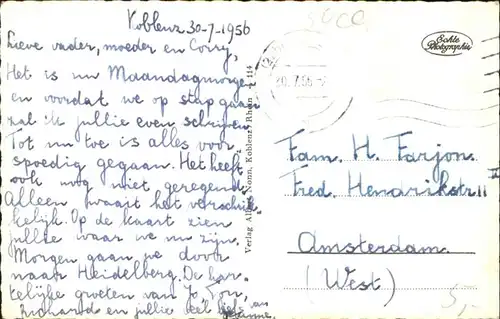 Koblenz 30-7-1956
Lieve vader, moeder en Corry,
Het is nu Maandagmorgen
en voordat we op stap gaan
zal ik jullie even schrijven.
Tot nu toe is alles voor-
spoedig gegaan. Het heeft
ook nog niet geregend.
Alleen waait het verschrik-
kelijk. Op de kaart zien
jullie waar we nu zijn.
Morgen gaan we door
naar Heidelberg. De har-
telijke groeten van Jo, Ton,
en jullie veel liefs van
Echte
Photographie
Verlag Alfred Nonn, Koblenz/Rhein 114
Fam. H. Farjon.
Fred. Hendrikstr. 11
Amsterdam.
(West)
5,-